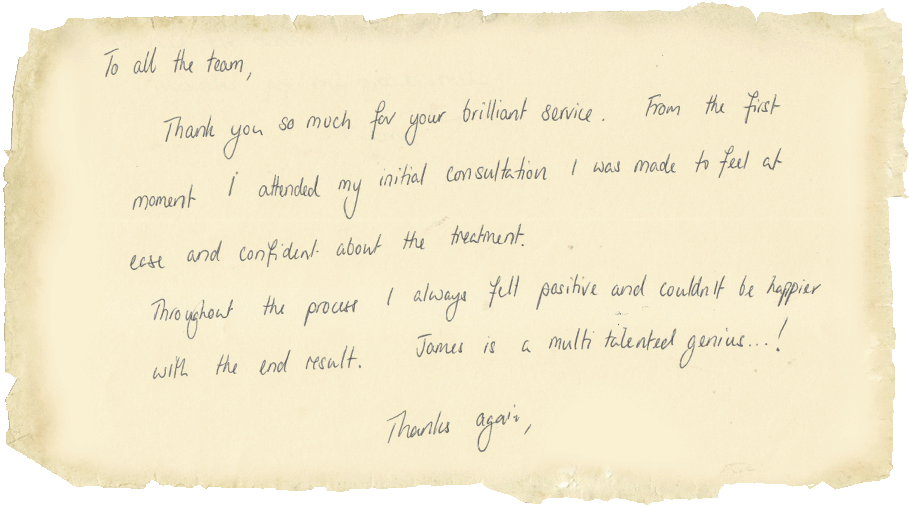 To all the team,
Thank you so much for your brilliant service. From the first
moment I attended my initial consultation I was made to feel at
ease and confident about the treatment.
Throughout the process I always felt positive and couldn't be happier
with the end result. James is a multi talented genius...!
Thanks again,